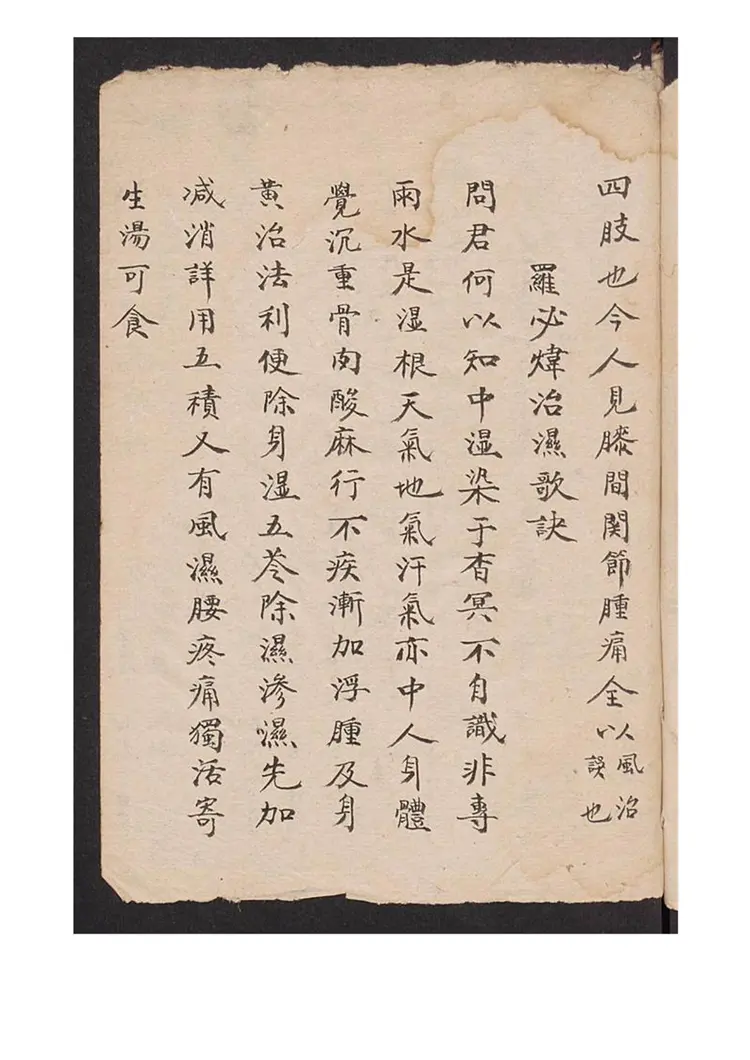 四肢也今人見膝間関節腫痛全以風治誤也
羅必煒治濕歌訣
問君何以知中湿染于杳冥不自識非專
雨水是湿根天氣地氣汗氣亦中人身體
覺沉重骨肉酸麻行不疾漸加浮腫及身
黄治法利便除身湿五苓除濕滲濕先加
减消詳用五積又有風濕腰疼痛獨活寄
生湯可食